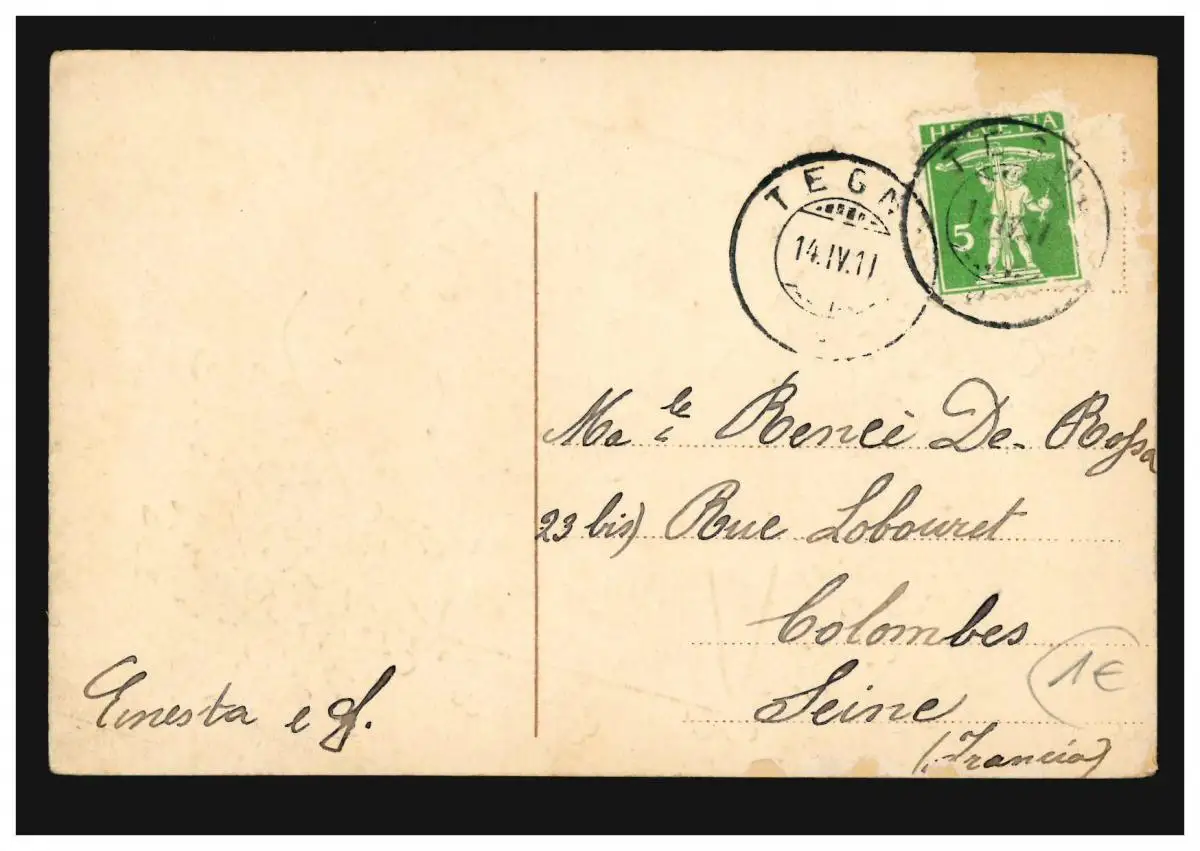 HELVETIA
5
TEGNA
TEGNA
14.IV.11
Ma le Reneé De-Rossa
23 bis) Rue Lobouret
Colombes
Seine
(Francia)
1€
Ernesta e